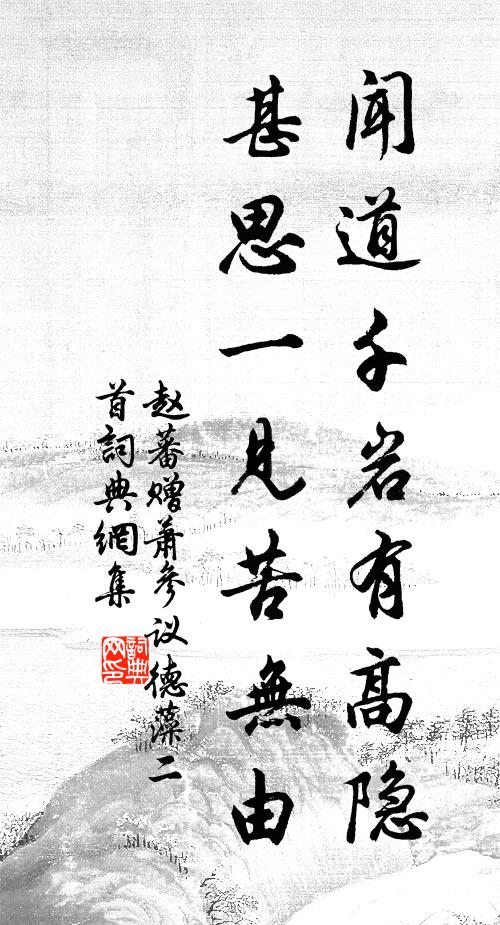 闻道千岩有高隐
甚思一见苦無由
赵蕃赠萧参议德藻二
首詞典網集
詞典
网印